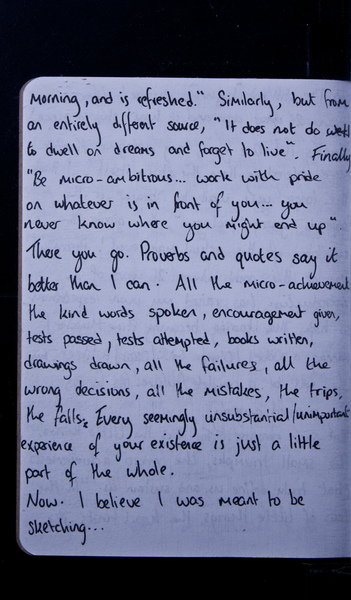 morning, and is refreshed." Similarly, but from
an entirely different source, "It does not do well
to dwell on dreams and forget to live". Finally
"Be micro-ambitious... work with pride
on whatever is in front of you... you
never know where you might end up".
There you go. Proverbs and quotes say it
better than I can. All the micro-achievement
the kind words spoken, encouragement given,
tests passed, tests attempted, books written,
drawings drawn, all the failures, all the
wrong decisions, all the mistakes, the trips,
the falls. Every seemingly unsubstantial/unimportant
experience of your existence is just a little
part of the whole.
Now. I believe I was meant to be
sketching...